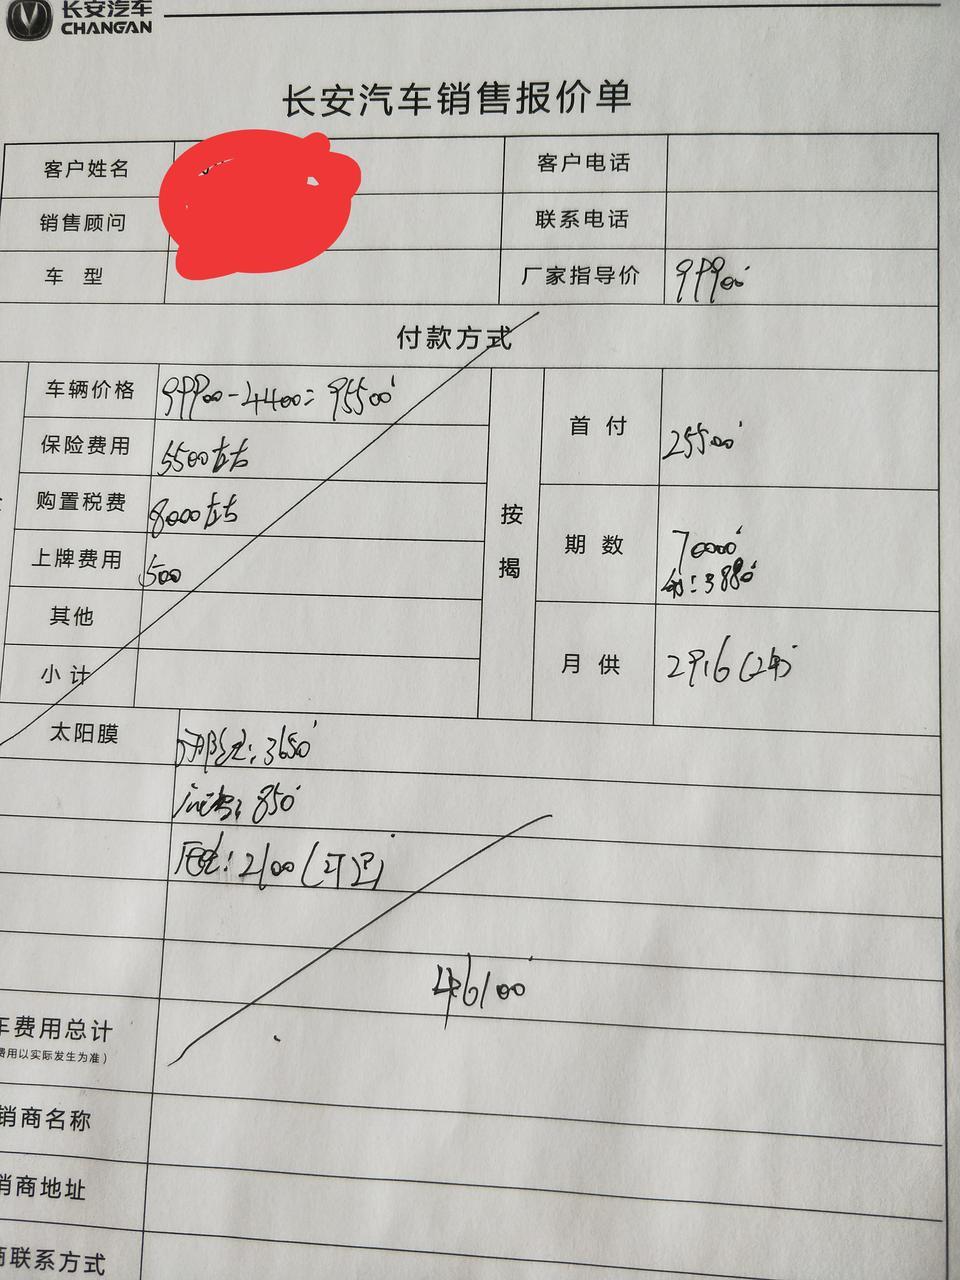 长安汽车
CHANGAN
长安汽车销售报价单
客户姓名 客户电话
销售顾问 联系电话
车 型 厂家指导价 99900
付款方式
车辆价格 99900-4400=95500
保险费用 5500左右
购置税费 8000左右
上牌费用 500
其他
小计
按揭
首 付 25500
期 数 70000
3880
月 供 2916(24期)
太阳膜 3650
850
2100
46100
车费用总计
费用以实际发生为准)
销商名称
销商地址
商联系方式